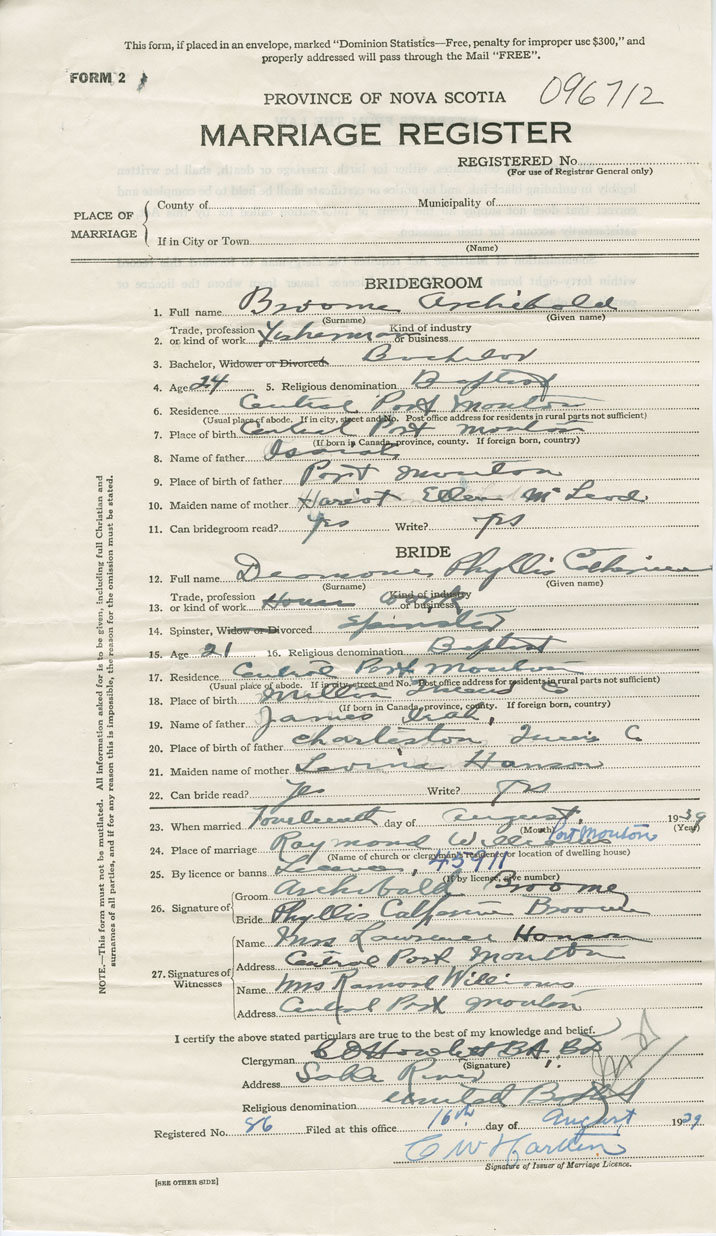 This form, if placed in an envelope, marked "Dominion Statistics—Free, penalty for improper use $300," and
properly addressed will pass through the Mail "FREE".
FORM 2
PROVINCE OF NOVA SCOTIA 096712
MARRIAGE REGISTER
REGISTERED No.
(For use of Registrar General only)
PLACE OF MARRIAGE
County of Municipality of
If in City or Town
(Name)
BRIDEGROOM
1. Full name Broome Archibald
(Surname) (Given name)
2. Trade, profession or kind of work Fisherman Kind of industry or business
3. Bachelor, Widower or Divorced Bachelor
4. Age 24 5. Religious denomination Baptist
6. Residence Central Port Mouton
(Usual place of abode. If in city, street and No. Post office address for residents in rural parts not sufficient)
7. Place of birth Central Port Mouton
(If born in Canada, province, county. If foreign born, country)
8. Name of father Isaiah
9. Place of birth of father Port Mouton
10. Maiden name of mother Hariot Ellen McLeod
11. Can bridegroom read? Yes Write? Yes
BRIDE
12. Full name Phyllis Catherine
(Surname) (Given name)
13. Trade, profession or kind of work House work Kind of industry or business
14. Spinster, Widow or Divorced Spinster
15. Age 21 16. Religious denomination Baptist
17. Residence Central Port Mouton
(Usual place of abode. If in city, street and No. Post office address for residents in rural parts not sufficient)
18. Place of birth Queens Co
(If born in Canada, province, county. If foreign born, country)
19. Name of father James
20. Place of birth of father Charleston Queens C.
21. Maiden name of mother Lavina Hanson
22. Can bride read? Yes Write? Yes
23. When married Fourteenth day of August, 1939
(Month) (Year)
24. Place of marriage Raymond Port Mouton
(Name of church or clergyman's residence or location of dwelling house)
25. By licence or banns License, 43911
(If by licence, give number)
26. Signature of
Groom Archibald Broome
Bride Phyllis Catherine Broome
27. Signatures of Witnesses
Name Mrs Lawrence Hanson
Address Central Port Moulton
Name Mrs Ramond Williams
Address Central Port Mouton
I certify the above stated particulars are true to the best of my knowledge and belief.
Clergyman C D Howlett BA, BD
(Signature)
Address Sable River
Religious denomination United Baptist
Registered No. 86 Filed at this office 16th day of August 1939
C W Harten
Signature of Issuer of Marriage Licence.
[SEE OTHER SIDE]
NOTE.—This form must not be mutilated. All information asked for is to be given, including full Christian and
surnames of all parties, and if for any reason this is impossible, the reason for the omission must be stated.